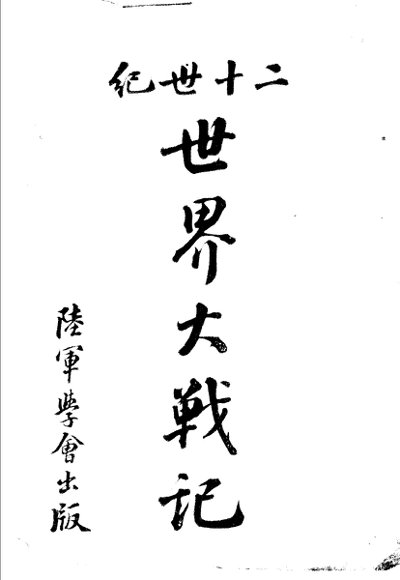 二十世紀
世界大戰记
陸軍學會出版